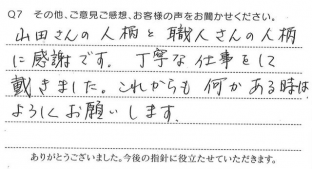 Q7 その他、ご意見ご感想、お客様の声をお聞かせください。
山田さんの人柄と職人さんの人柄
に感謝です。丁寧な仕事をして
戴きました。これからも何かある時は
よろしくお願いします。
ありがとうございました。今後の指針に役立たせていただきます。